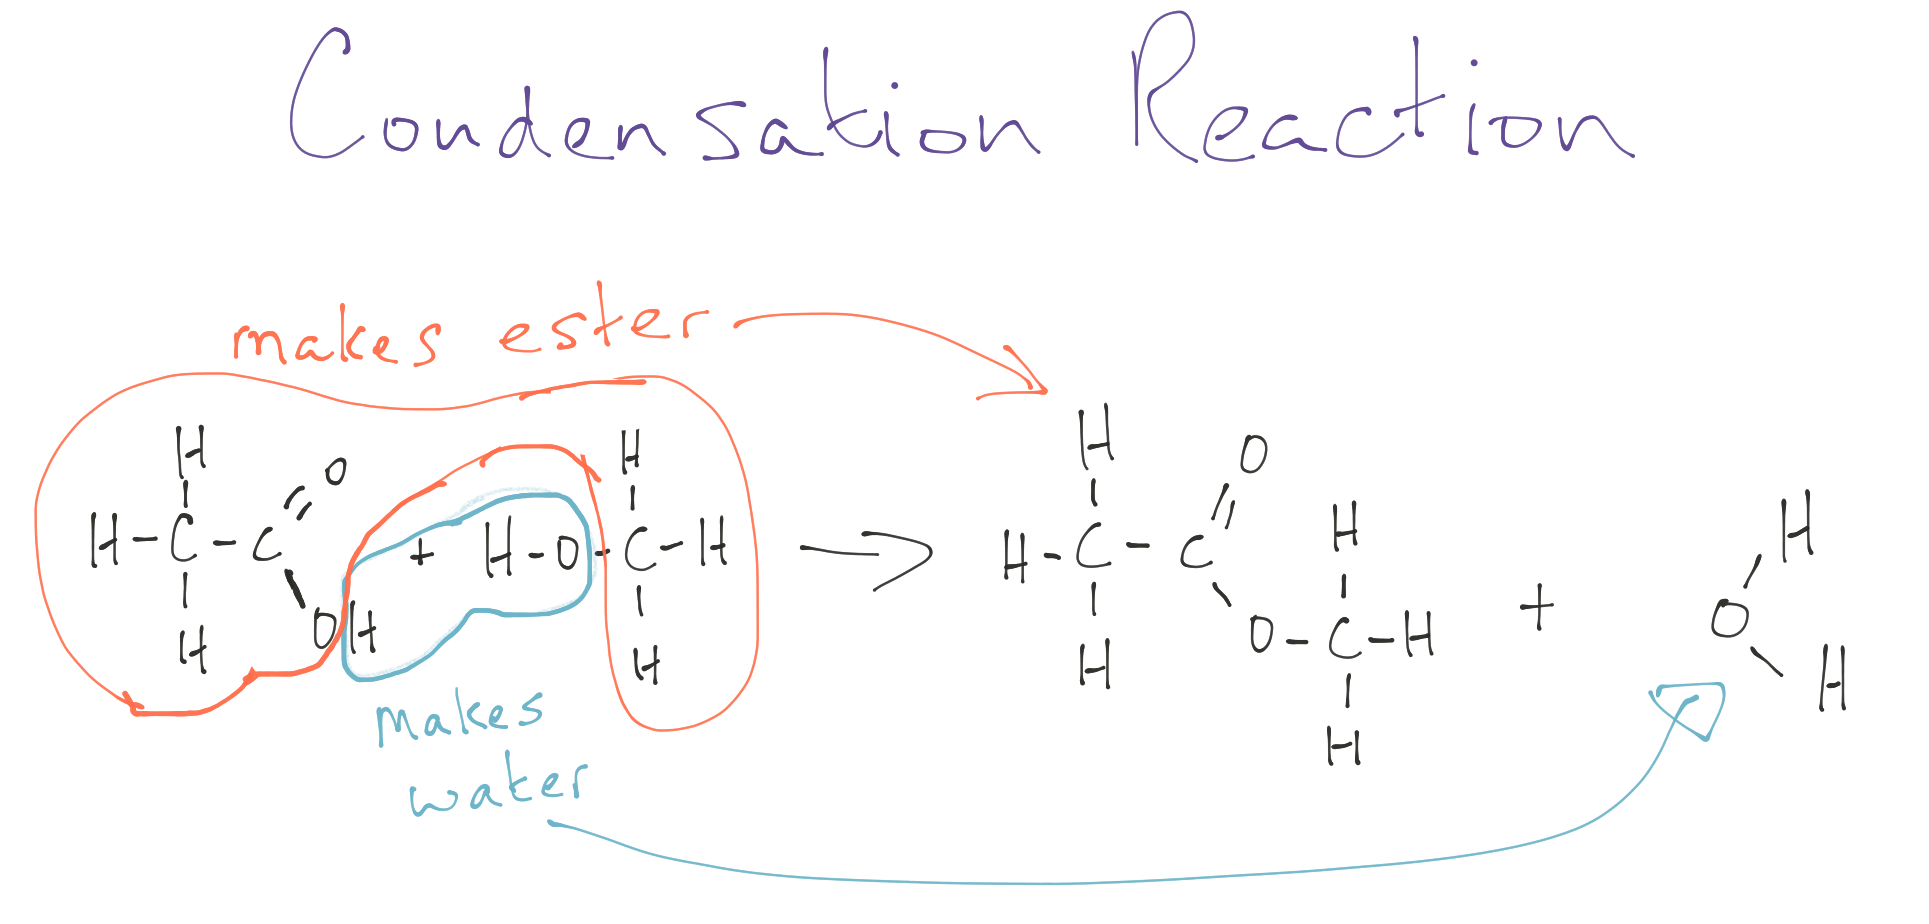 Condensation Reaction
makes ester
H H O
H-C-C + H-O-C-H
H OH H
H O
H-C-C H
O-C-H + O H
H H H
makes
water